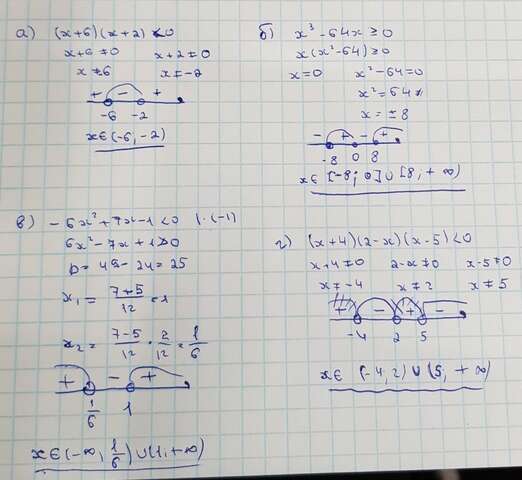 а) (x+6)(x+2) < 0
x+6 ≠ 0   x+2 = 0
x ≠ 6   x = -2
+ - +
-6 -2
x∈(-6, -2)
б) x³ - 64x ≥ 0
x(x² - 64) ≥ 0
x = 0   x² - 64 = 0
x² = 64
x = ± 8
- + - +
-8 0 8
x∈ [-8; 0] ∪ [8; + ∞)
в) -6x² + 7x - 1 < 0 | · (-1)
6x² - 7x + 1 > 0
D = 49 - 24 = 25
x₁ = 7+5/12 = 1
x₂ = 7-5/12 = 2/12 = 1/6
+ - +
1/6 1
x∈(-∞, 1/6) ∪ (1, +∞)
г) (x+4)(2-x)(x-5) < 0
x+4 ≠ 0   2-x ≠ 0   x-5 ≠ 0
x ≠ -4   x ≠ 2   x ≠ 5
+ - + -
-4 2 5
x∈ (-4, 2) ∪ (5, + ∞)